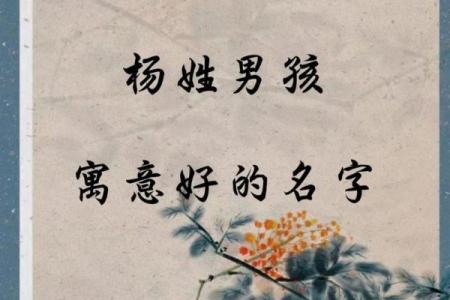 杨姓男孩
寓意好的名字